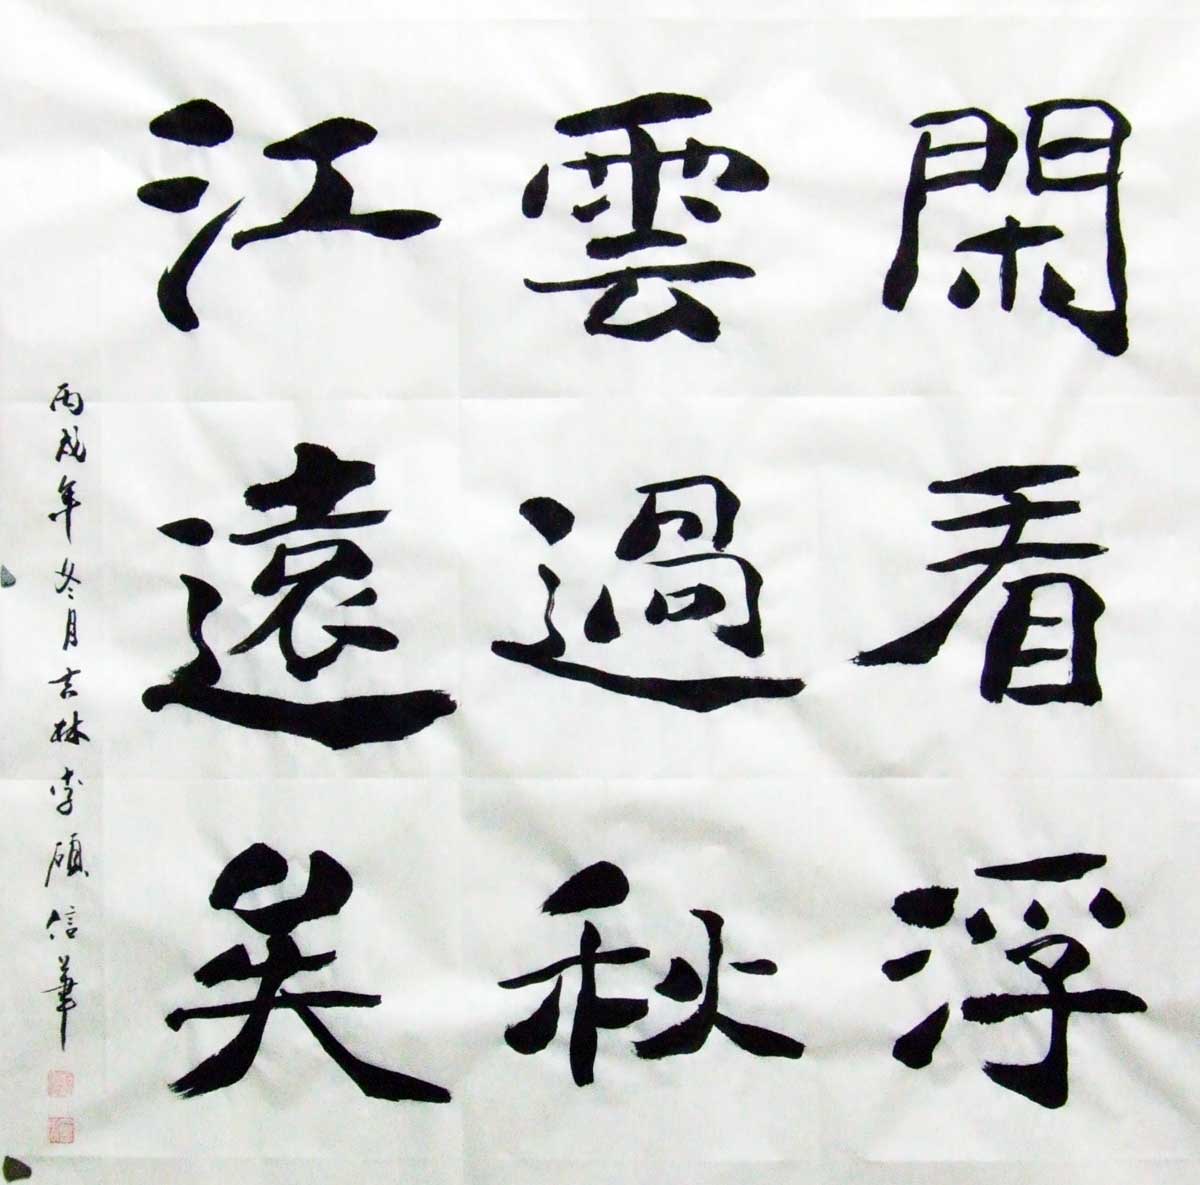 閑看浮
雲過秋
江遠矣
丙戌年冬月吉林李碩信筆